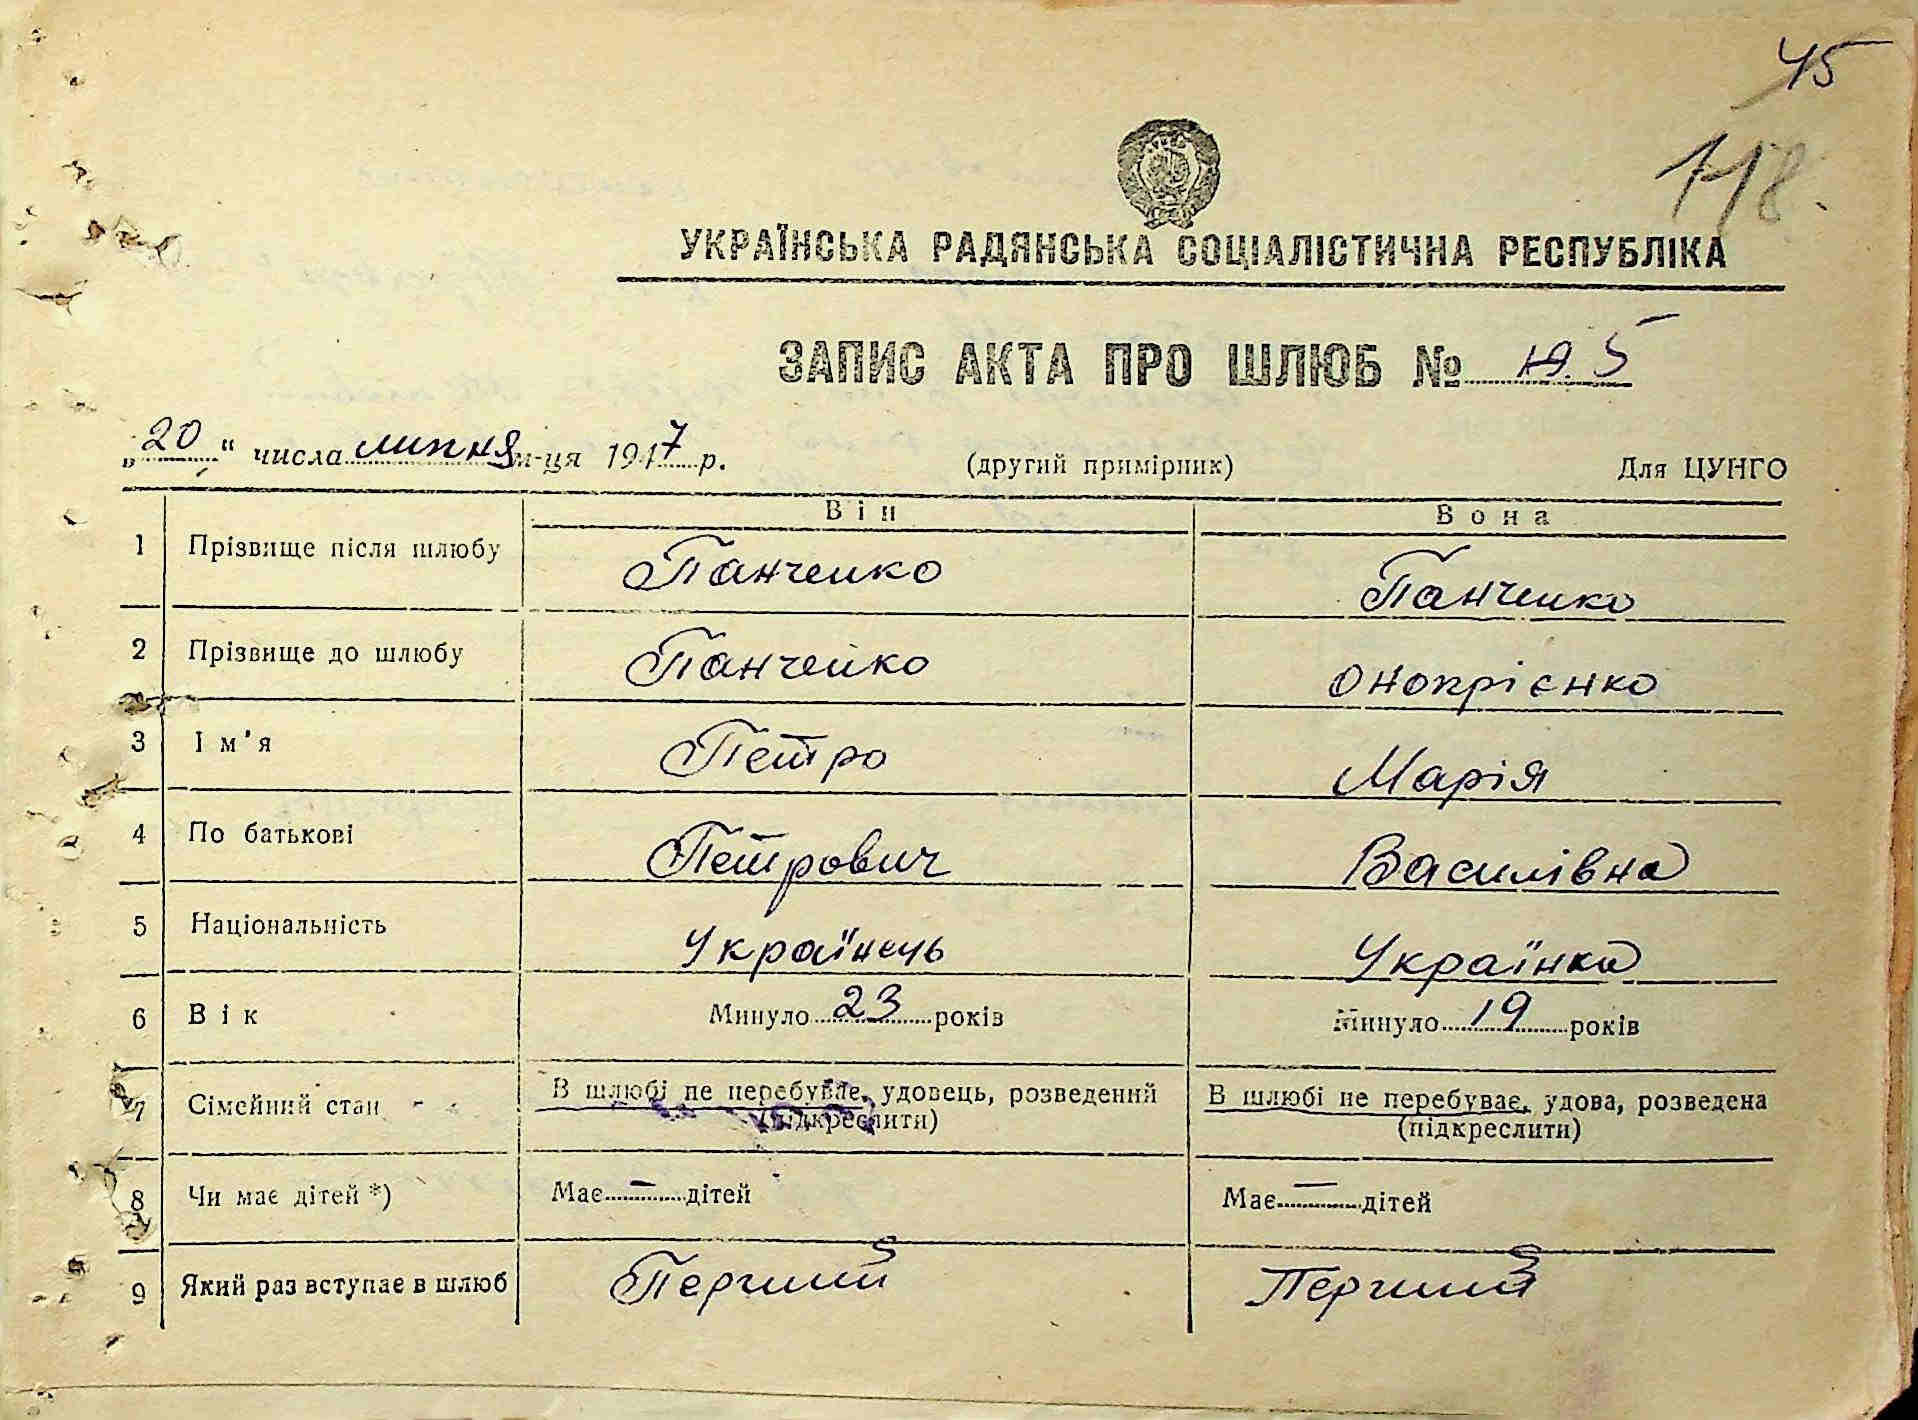 45
118.
УКРАЇНСЬКА РАДЯНСЬКА СОЦІАЛІСТИЧНА РЕСПУБЛІКА
ЗАПИС АКТА ПРО ШЛЮБ № 5
„20“ числа липня м-ця 1947 р. (другий примірник) Для ЦУНГО
Він Вона
1 Прізвище після шлюбу Панченко Панченко
2 Прізвище до шлюбу Панченко Онопрієнко
3 Ім'я Петро Марія
4 По батькові Петрович Василівна
5 Національність Українець Українка
6 Вік Минуло 23 років Минуло 19 років
7 Сімейний стан В шлюбі не перебуває, удовець, розведений В шлюбі не перебуває, удова, розведена
(підкреслити) (підкреслити)
8 Чи має дітей *) Має — дітей Має — дітей
9 Який раз вступає в шлюб Перший Перший